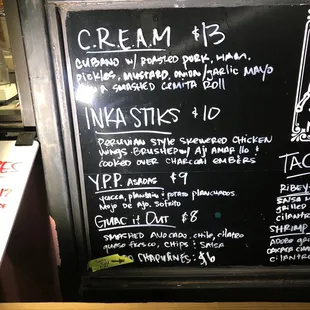 C.R.E.A.M $13
CUBANO W/ ROASTED PORK, HAM,
PICKLES, MUSTARD, ONION/GARLIC MAYO
A SMASHED CEMITA ROLL
INKA STIKS $10
PERUVIAN STYLE SKEWERED CHICKEN
WINGS BRUSHED W/ AJI AMARILLO &
COOKED OVER CHARCOAL EMBERS
Y.P.P. ASADAS $9
YUCCA, PLANTAIN & POTATO PLANCHADOS
MOJO DE AJO, SOFRITO
GUAC IT OUT $8
SMASHED AVOCADO, CHILE, CILATRO
QUESO FRESCO, CHIPS & SALSA
CHAPULINES: $6
TAC
RIBEY
GRILLED
CILANTR
SHRIMP
ADOBO GRI
OAXACA CHA
CILANTRO
ES
12